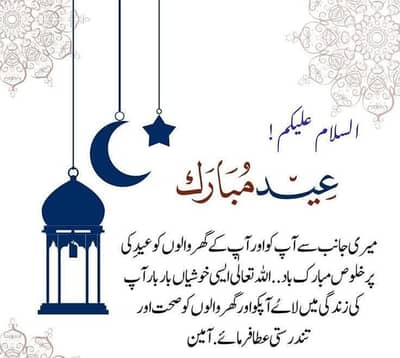 السلام علیکم!
عید مُبارَک
میری جانب سے آپ کو اور آپ کے گھر والوں کو عیدِ کی
پر خلوص مبارک باد.. اللہ تعالیٰ ایسی خوشیاں بار بار آپ
کی زندگی میں لائے آپکو اور گھر والوں کو صحت اور
تندرستی عطا فرمائے. آمین